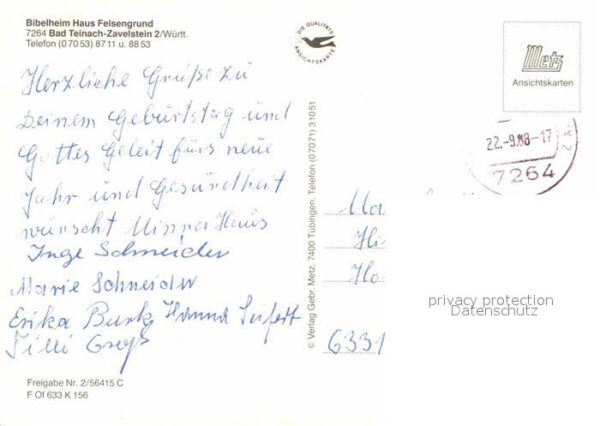 Bibelheim Haus Felsengrund
7264 Bad Teinach-Zavelstein 2/Württ.
Telefon (0 70 53) 87 11 u. 88 53
DIE QUALITÄTS
ANSICHTSKARTE
Metz
Ansichtskarten
22.-9.88-17
7264
Herzliche Grüße zu
Deinem Geburtstag und
Gottes Geleit fürs neue
Jahr und Gesundheit
wünscht Minna Haus
Inge Schneider
Marie Schneider
Erika Burk Hanna Seifert
Tilli Groß
© Verlag Gebr. Metz, 7400 Tübingen, Telefon (07071) 31051
Ma
Hi
Ho
6331
privacy protection
Datenschutz
Freigabe Nr. 2/56415 C
F Of 633 K 156